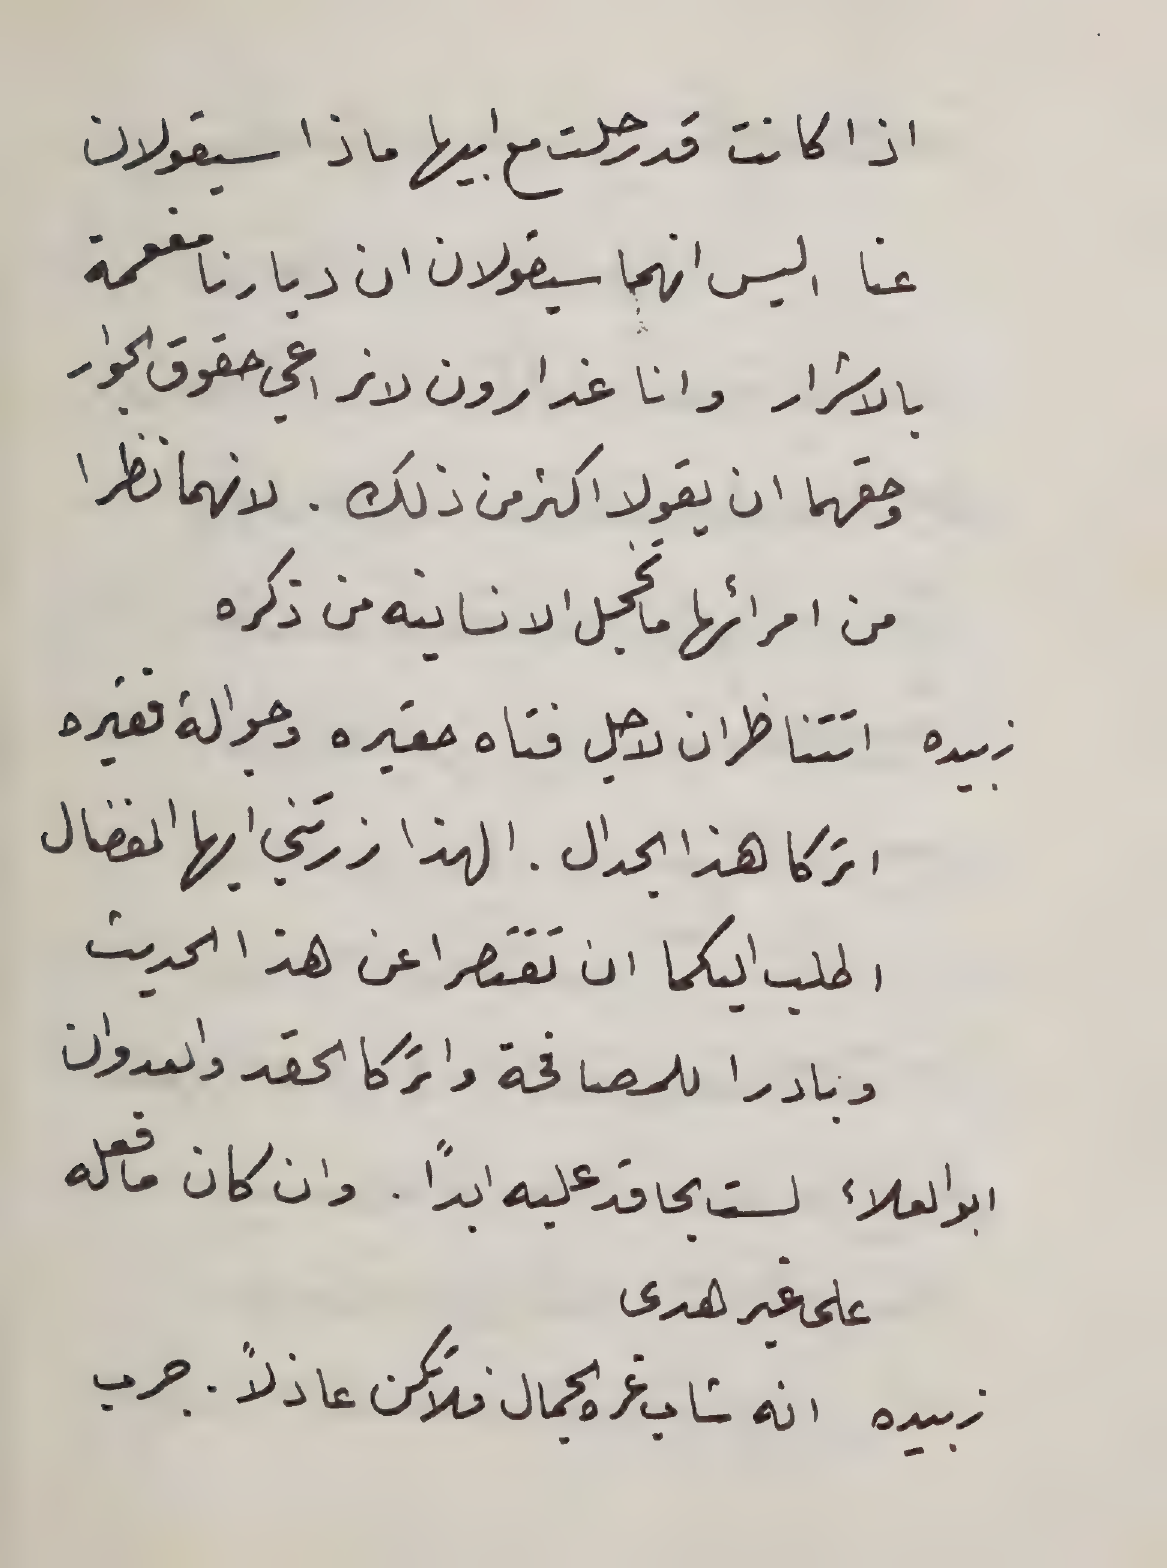 اذا كانت قد رحلت مع ابيها ماذا سيقولان
عنا اليس انهما سيقولان ان ديارنا مفعمة
بالاشرار وانا غدارون لانراعي حقوق الجوار
وحقهما ان يقولا اكثر من ذلك . لانهما نظرا
من امرائها ما تخجل الانسانيه من ذكره
زبيده اتتناظران لاجل فتاه حقيره وجوالة فقيره
اتركا هذا الجدال . الهذا زرتني ايها المفضال
اطلب اليكما ان تقتصرا عن هذا الحديث
وبادرا للمصافحة واتركا الحقد والعدوان
ابو العلاء لست بحاقد عليه ابدًا . وان كان مافعله
على غير هدى
زبيده انه شاب غره الجمال فلا تكن عاذلاً . جرب